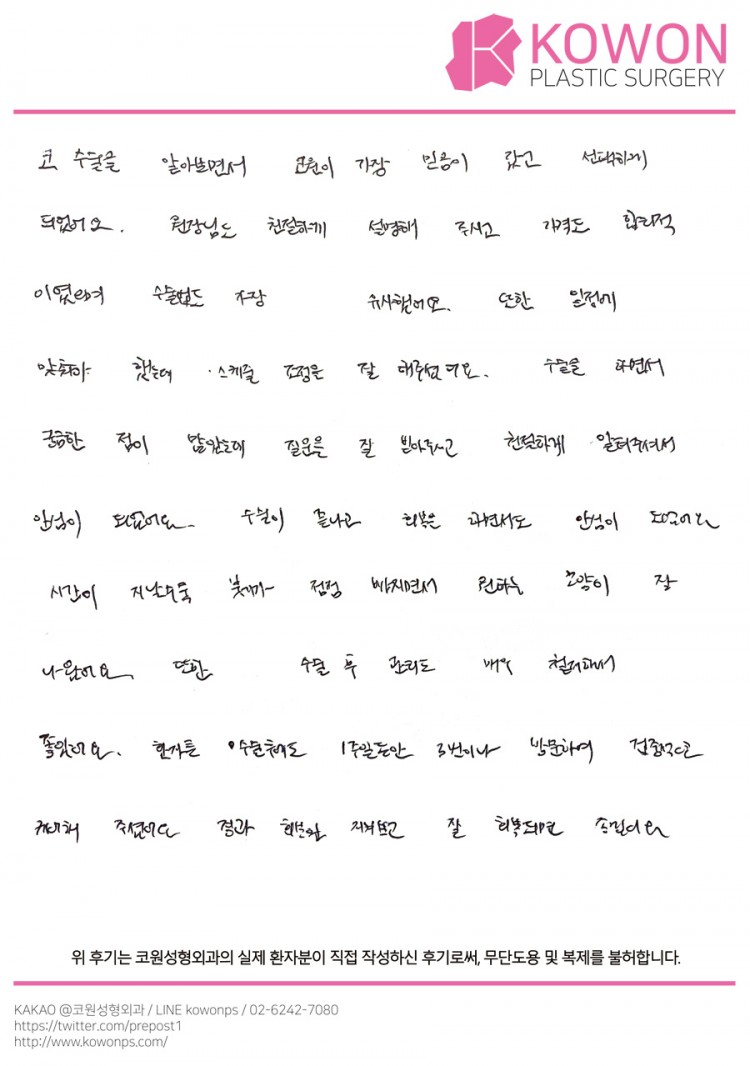 KOWON
PLASTIC SURGERY
코 수술을 알아보면서 코원이 가장 믿음이 갔고 선택하게
되었어요. 원장님도 친절하게 설명해 주시고 가격도 합리적
이였으며 수술법도 가장 유사했어요. 또한 일정에
맞춰야 했는데 스케줄 조정을 잘 해주셨어요. 수술을 하면서
궁금한 점이 많았는데 질문을 잘 받아주시고 친절하게 알려주셔서
안심이 되었어요. 수술이 끝나고 회복을 하면서도 안심이 되었어요
시간이 지날수록 붓기가 점점 빠지면서 원하는 모양이 잘
나왔어요. 또한 수술 후 관리도 매우 철저해서
좋았어요. 한가득 수술해도 1주일동안 3번이나 방문하여 집중적으로
케어해 주셨어요 결과 지켜보고 잘 회복되면 좋겠어요
위 후기는 코원성형외과의 실제 환자분이 직접 작성하신 후기로써, 무단도용 및 복제를 불허합니다.
KAKAO @코원성형외과 / LINE kowonps / 02-6242-7080
https://twitter.com/prepost1
http://www.kowonps.com/